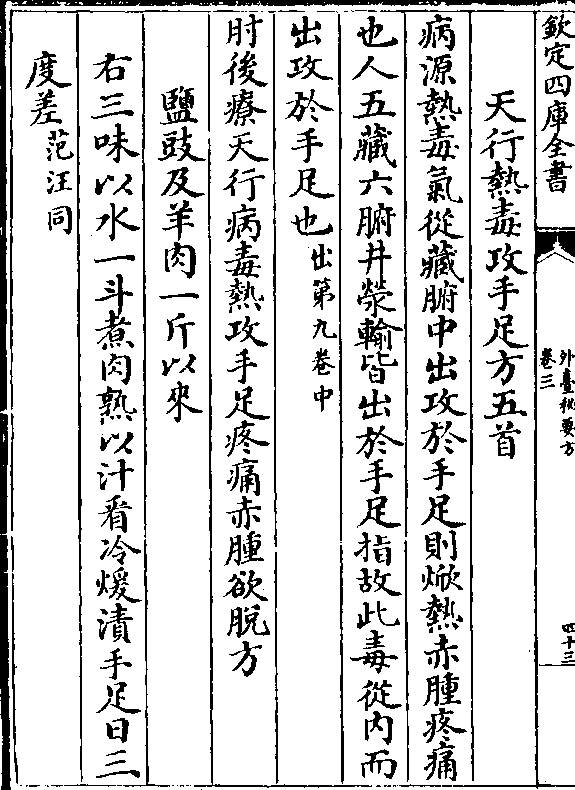 欽定四庫全書
外臺秘要方
卷三
四十三
天行熱毒攻手足方五首
病源熱毒氣從藏腑中出攻於手足則焮熱赤腫疼痛
也人五藏六腑井滎輸皆出於手足指故此毒從内而
出攻於手足也出第九卷中
肘後療天行病毒熱攻手足疼痛赤腫欲脱方
鹽豉及羊肉一斤以來
右三味以水一斗煮肉熟以汁看冷煖漬手足日三
度差范汪同